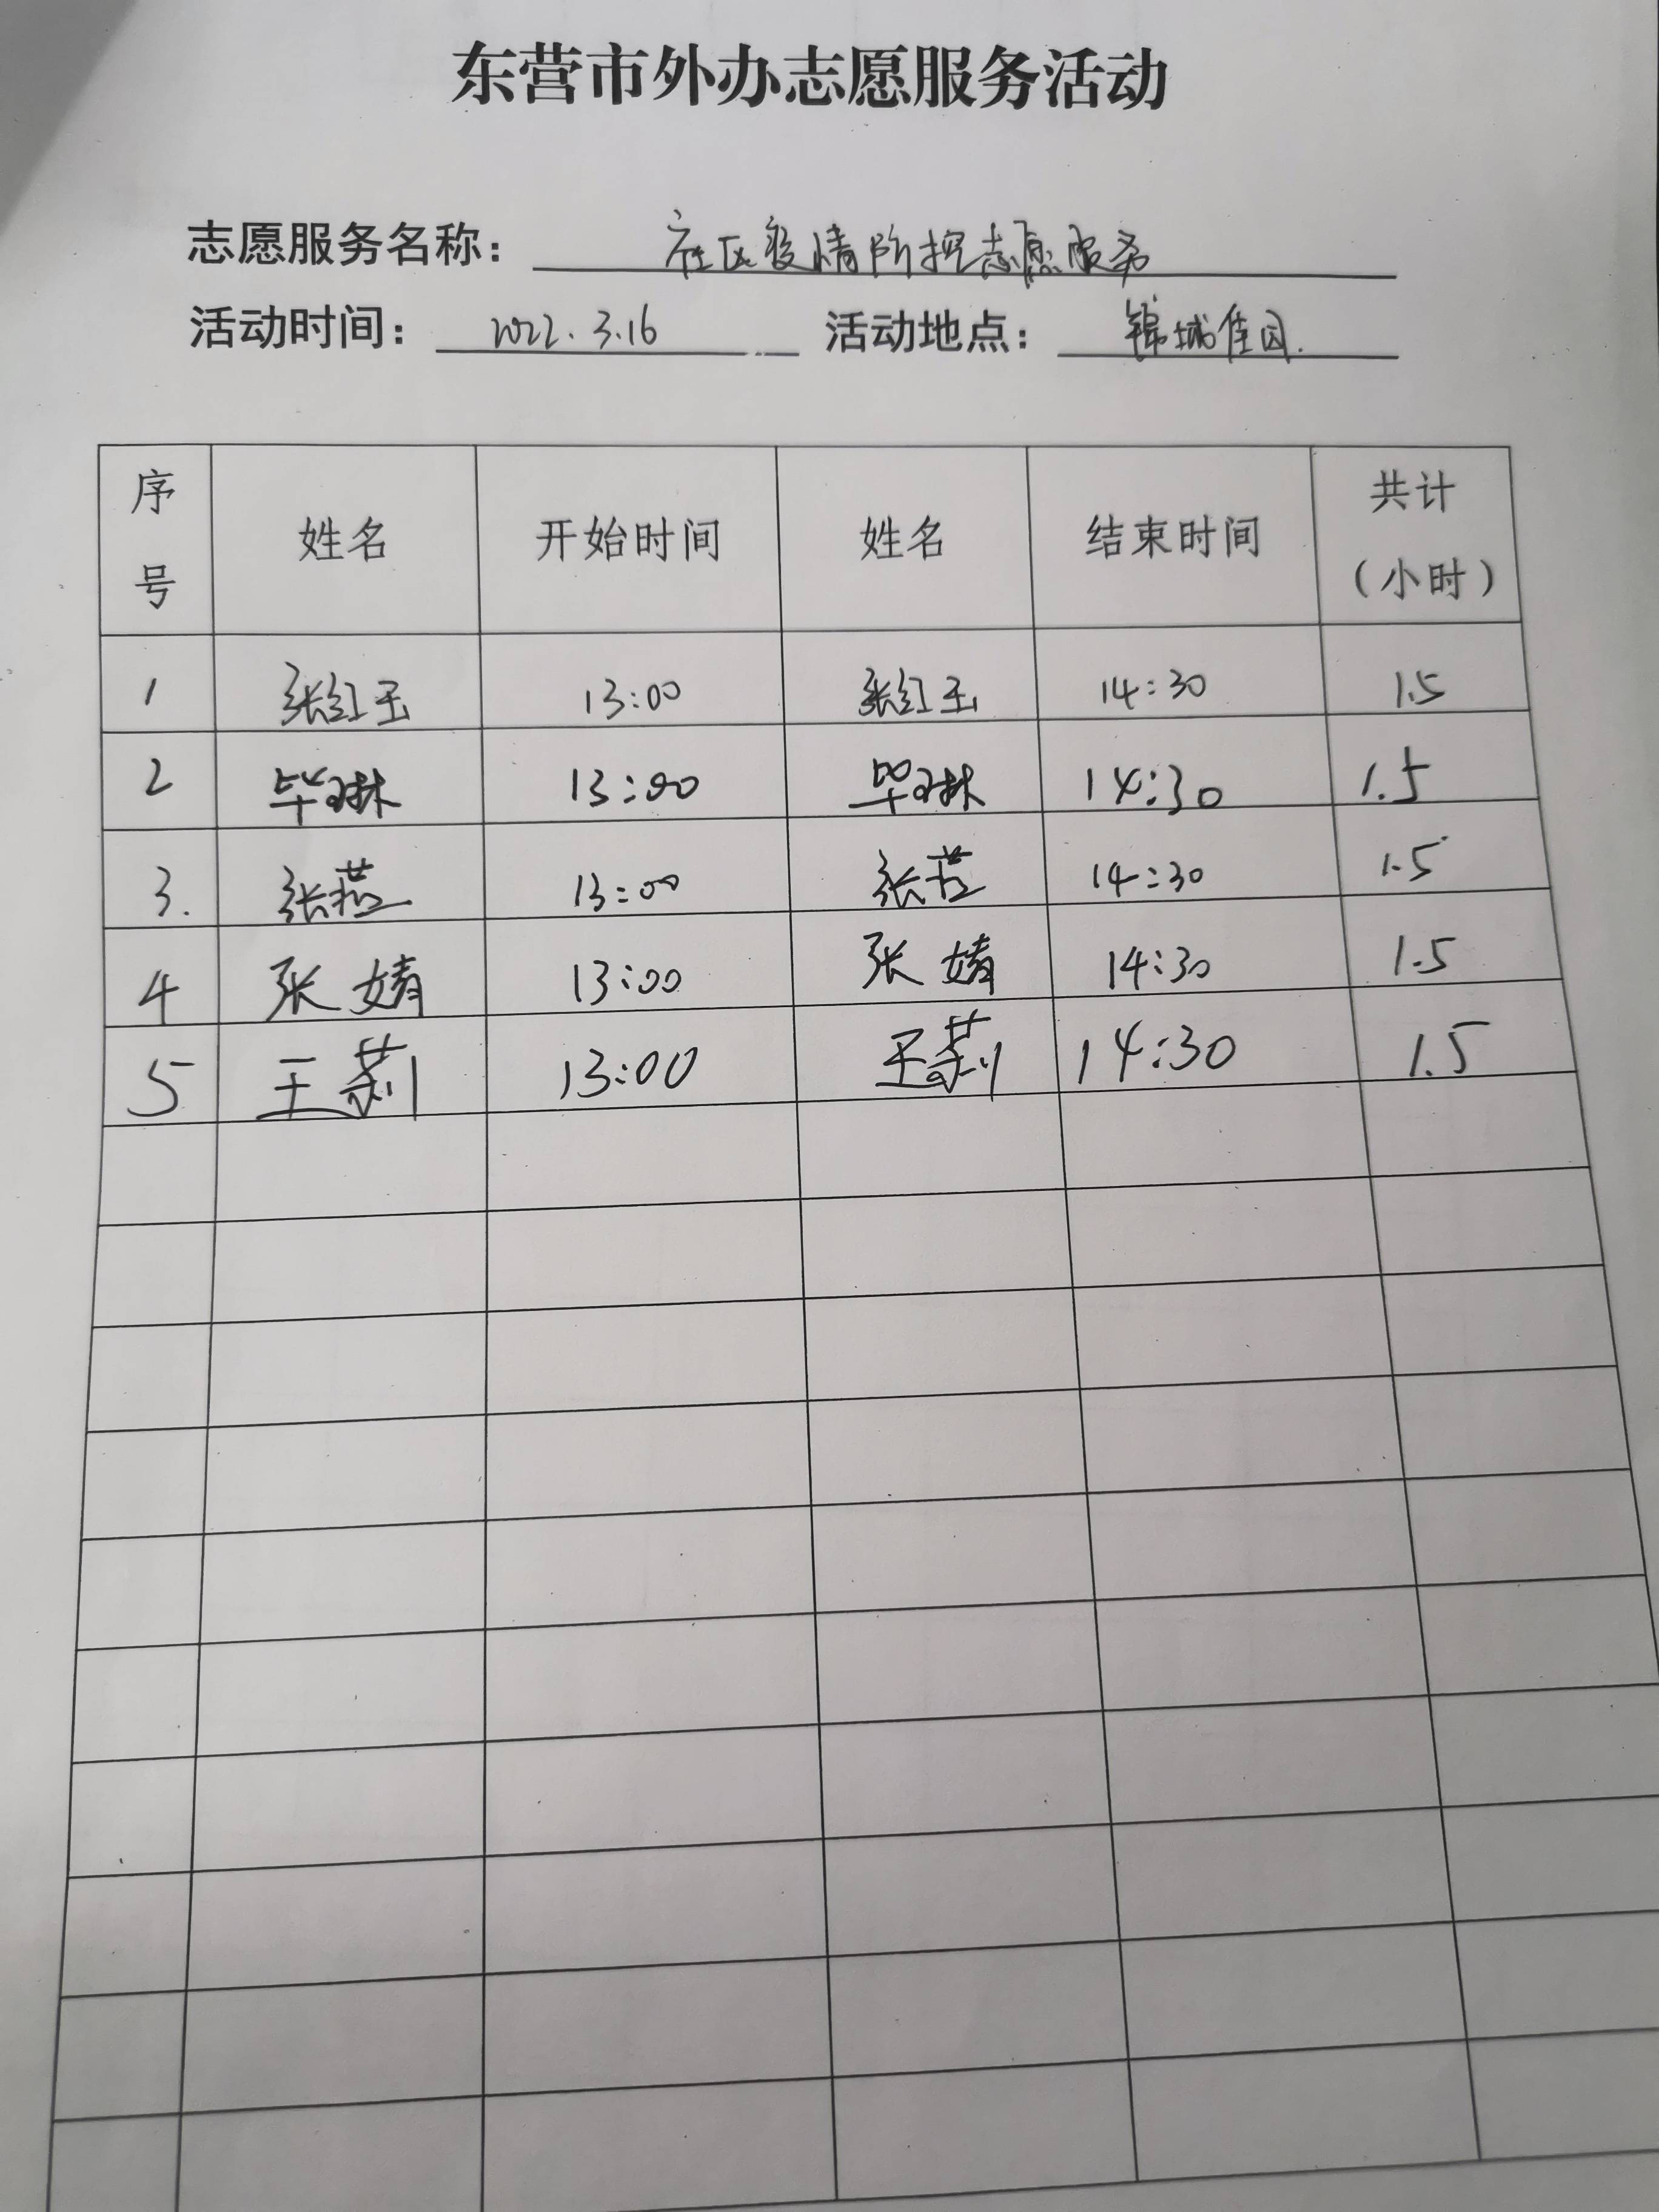 东营市外办志愿服务活动
志愿服务名称： 社区疫情防控志愿服务
活动时间： 2022.3.16 活动地点： 锦城佳园.
序号 姓名 开始时间 姓名 结束时间 共计（小时）
1 张红玉 13:00 张红玉 14:30 1.5
2 毕琳 13:00 毕琳 14:30 1.5
3. 张燕 13:00 张燕 14:30 1.5
4 张婧 13:00 张婧 14:30 1.5
5 王莉 13:00 王莉 14:30 1.5